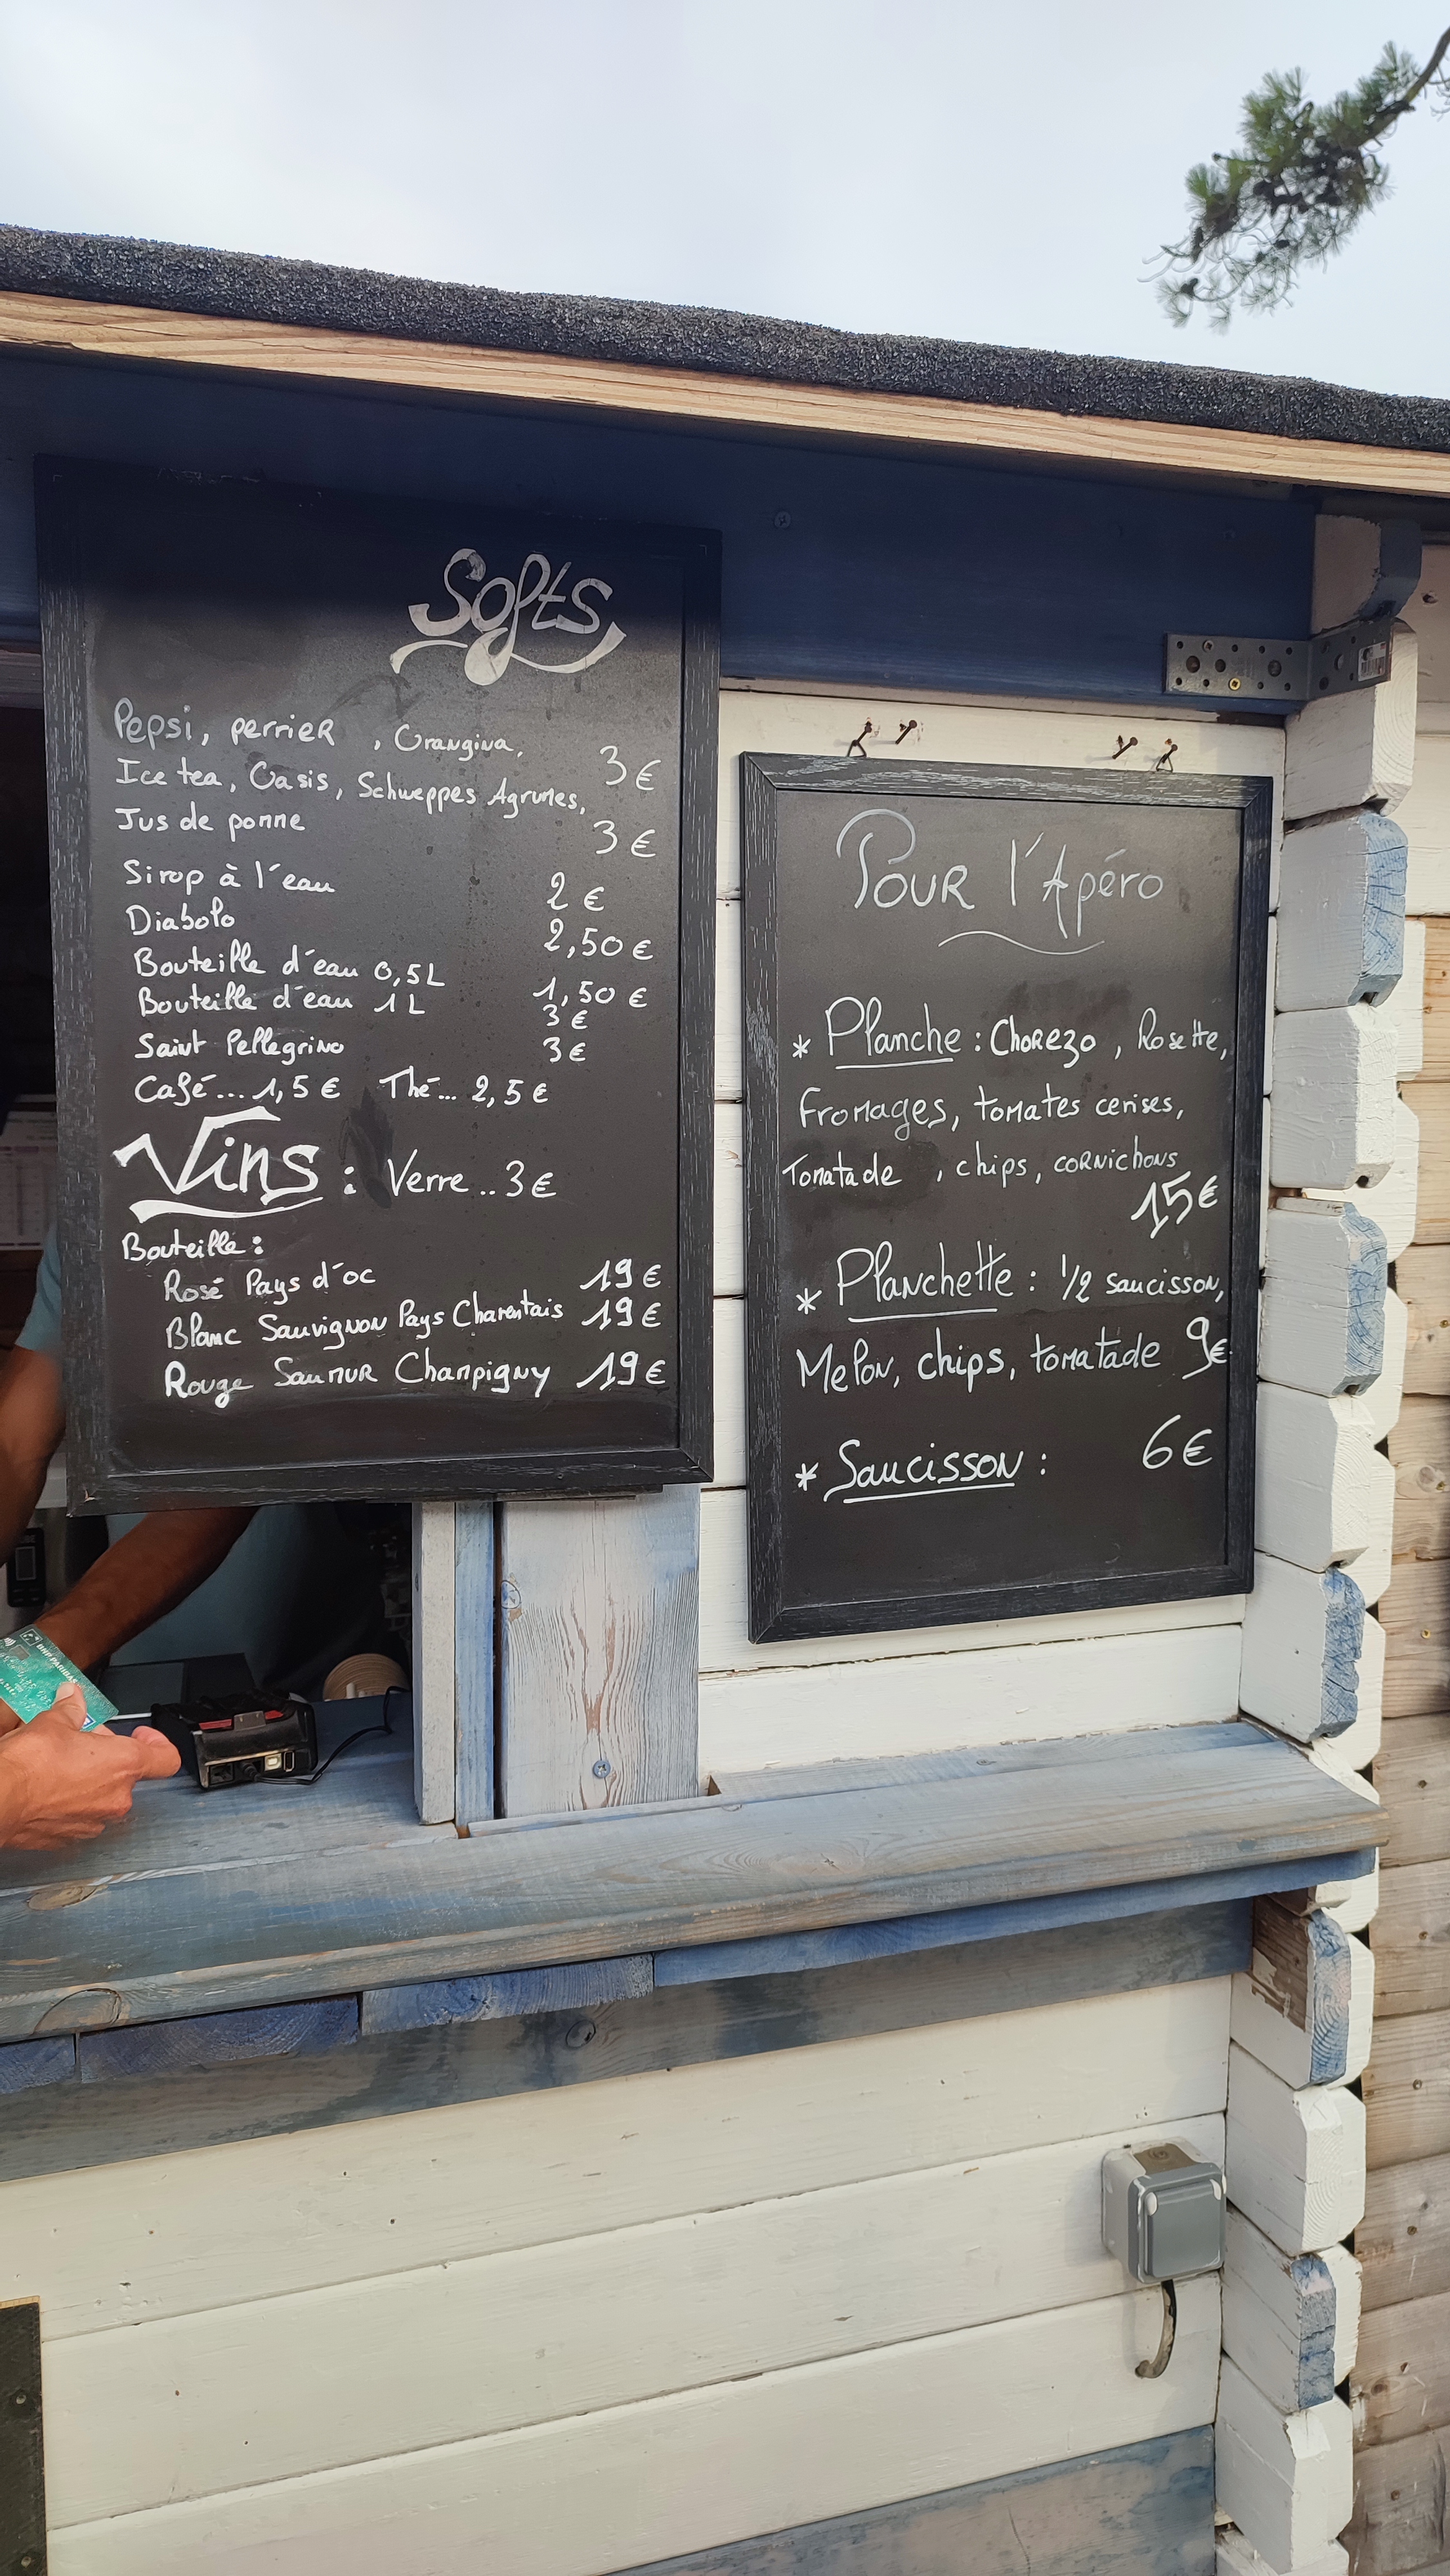 Softs
Pepsi, perrier , Orangina, 3€
Ice tea, Oasis, Schweppes Agrumes,
Jus de pomme 3€
Sirop à l'eau 2€
Diabolo 2,50€
Bouteille d'eau 0,5L 1,50€
Bouteille d'eau 1L 3€
Saint Pellegrino 3€
Café... 1,5€ Thé... 2,5€
Vins : Verre .. 3€
Bouteille :
Rosé Pays d'oc 19€
Blanc Sauvignon Pays Charentais 19€
Rouge Saumur Champigny 19€
Pour l'Apéro
* Planche : Chorezo , Rosette,
Fromages, tomates cerises,
Tomatade , chips, cornichons
15€
* Planchette : 1/2 saucisson,
Melon, chips, tomatade 9€
* Saucisson : 6€
BNP PARIBAS